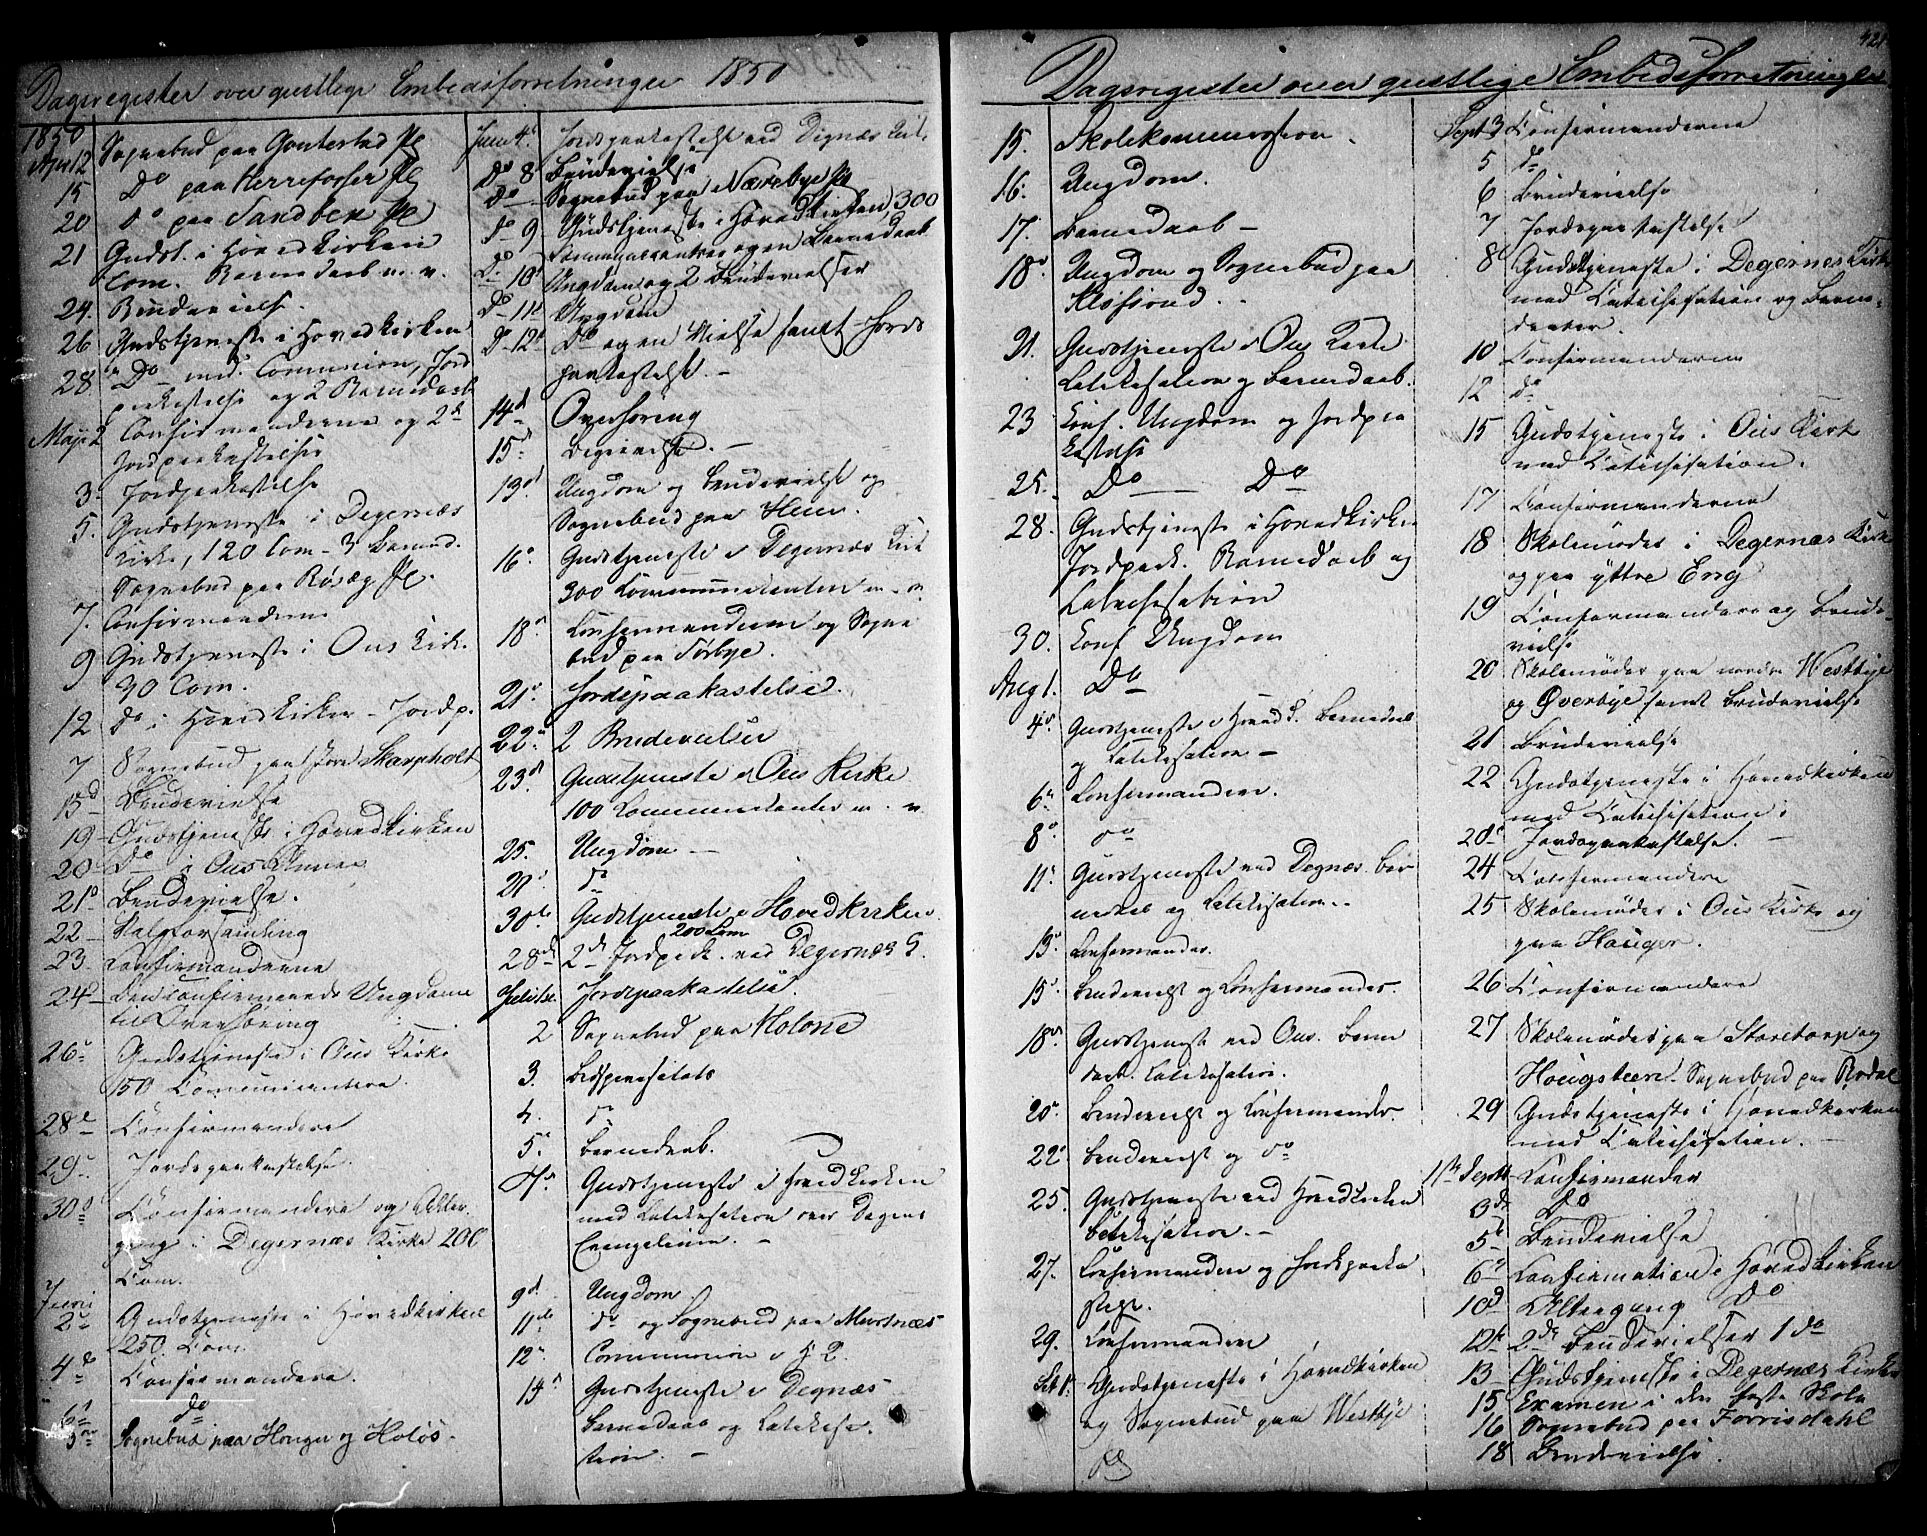 Dagsregister over geistlige Embedsforretninger 1850
1850
April 12 Sognebud paa Gautestad Pl
15 Do paa Herrefosser Pl
20 do paa Sandbek Pl
21 Gudst. i Hovedkirken
Com. Barnedaab m. v.
24. Brudevielse.
26 Gudstjeneste i Hovedkirken
28. Do med Communion, Jord
paakastelse og 2 Barnedaab
Maji 2 Confirmanderne og 2de
Jordpaakastelser
3 Jordpaakastelse
5. Gudstjeneste i Degernæs
Kirke, 120 Com - 3 Barned.
Sognebud paa Røsæg Pl.
7. Confirmanderne
9 Gudstjeneste i Ous Kirke.
30 Com.
12 do i Hovedkirken - Jordp.
7 Sognebud paa Skarpholt
15d Brudevielse
19 Gudstjeneste i Hovedkirken
20 Do i Ous
21d Brudevielse.
22 Valgforsamling
23. Confirmanderne
24d Den confirmerede Ungdom
til Overhøring
26. Gudstjeneste i Ous Kirke
150 Communicantere.
28d Confirmandere
29. Jordspaakastelse.
30d Confirmandere og Alter
gang i Degernæs Kirke 200
Com.
Juni
2d Gudstjeneste i Hovedkirken
250. Com.
4d Confirmandere.
6d do
Sognebud paa Houger og Holøs.
Juni 4. Jordpaakastelse ved Degnæs Kirk.
Do 8 Brudevielse
Do Sognebud paa Nærebye Pl
do 9 Gudstjeneste i Hovedkirken, 300
Communicantere og en Barnedaab
Do 10d Ungdom og 2 Brudevielser
Do 11d Ungdom
D 12d Do og en Vielse samt Jords
paakastelse. -
14d Overhøring
15d Begravelse. -
13d Ungdom og Brudevielse og
Sognebud paa Heen.
16. Gudstjeneste i Degernæs Kirke
300 Communicanter m. v.
18. Confirmanderne og Sogne
bud paa Torbye.
21. Jordspaakastelse.
22. 2 Brudevielser
23d. Gudstjeneste i Ous Kirke
100 Communicanter m. v.
25. Ungdom -
27. do
30te Gudstjeneste i Hovedkirken
200 Com
28de 2de Jordpaak. ved Degernæs K.
Juli 1ste Jordspaakastelse.
2 Sognebud paa Holone
3.
4. do
5. Barnedaab.
7. Gudstjeneste i Hovedkirken
med Catekisation over Dagens
Evangelium. -
9d. Ungdom
11te do og Sognebud paa Mortnæs
12. Communion i
14 Gudstjeneste i Degnæs
Barnedaab og Catekisa
tion. -
421
Dagsregister over geistlige Embedsforretninger
15. Skolekommission.
16. Ungdom.
17. Barnedaab -
18d Ungdom og Sognebud paa
Kløfsrud.
21. Gudstjeneste i Ous Kirke
Catekisation og Barnedaab.
23 Conf. Ungdom og Jordpaa
kastelse
25. Do Do
28. Gudstjeneste i Hovedkirken
Jordpaak. Barnedaab og
Catechisation
30. Conf Ungdom
Aug 1. Do
4de Gudstjeneste i Hoved K. Barnedaab
og Catekisation -
6. Confirmandere.
8d. do
11. Gudstjeneste ved Degnæs. Bar
nedaab og Catekisation..
13. Confirmander.
15. Brudevielse og Confirmander.
18de Gudstjeneste ved Ous. Barne
daab. Catekisation.
20. Brudevielse og Confirmander
22d Brudevielse og do
25. Gudstjeneste ved Hovedkirken
Catekisation. -
27. Confirmandere og Jordspaaka
stelse.
29. Confirmandere
Sept 1. Gudstjeneste i Hovedkirken
og Sognebud paa Westbye
Sept 3 Confirmanderne
5 do
6 Brudevielse
7 Jordspaakastelse
8 Gudstjeneste i Degernes Kirke
med Catechisation og Barne-
daaber.
10 Confirmanderne
12 do
15 Gudstjeneste i Ous Kirk
med Catechisation.
17 Confirmanderne
18 Skolemøder i Degernæs Kirke
og paa yttre Eng
19 Confirmandere og Brude-
vielse
20 Skolemøder paa nordre Westbye
og Øverbye samt Brudevielse
21 Brudevielse
22 Gudstjeneste i Hovedkirken
med Catechisation.
20d Jordspaakastelse. -
24 Confirmandere
25 Skolemøder i Ous Kirke og
paa Houger.
26 Confirmandere
27 Skolemøder paa Storetorp og
Hougsteen. Sognebud paa Rødal
29 Gudstjeneste i Hovedkirken
med Catechisation. -
1ste Confirmander
3d Do
5t Brudevielse
6. Confirmation i Hovedkirken
10d Altergang Do
12te 2de Brudevielser 1 do
13 Gudstjeneste i Degernæs Kirke
15 Examen i den faste Skole
16 Sognebud paa Forrisdahl
18 Brudevielse.